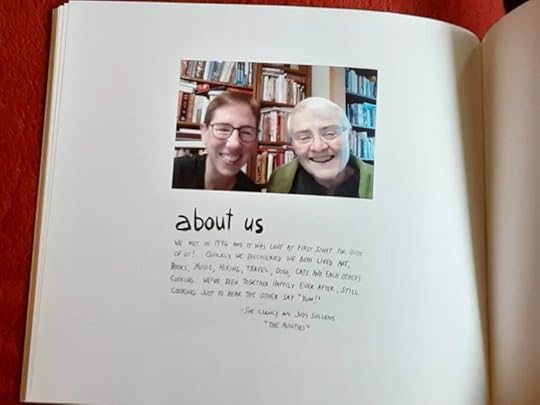 about us
WE MET IN 1996 AND IT WAS LOVE AT FIRST SIGHT FOR BOTH
OF US! QUICKLY WE DISCOVERED WE BOTH LIKED ART,
BOOKS, MUSIC, HIKING, TRAVEL, DOGS, CATS AND EACH OTHERS
COOKING. WE'VE BEEN TOGETHER HAPPILY EVER AFTER, STILL
COOKING JUST TO HEAR THE OTHER SAY "YUM!"
-SUE CLANCY AND JUDY SULLENS
"THE AUNTIES"